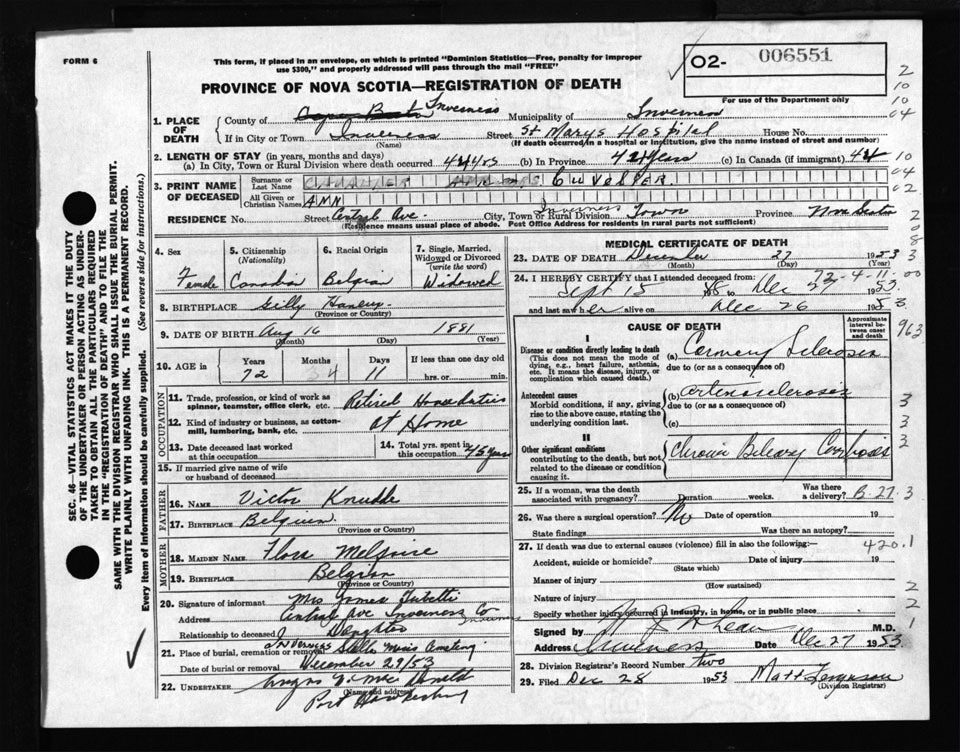 FORM 6
This form, if placed in an envelope, on which is printed "Dominion Statistics—Free, penalty for improper
use $300," and properly addressed will pass through the mail "FREE"
O2- 006551
For use of the Department only
PROVINCE OF NOVA SCOTIA—REGISTRATION OF DEATH
1. PLACE OF DEATH
County of Cape Breton Inverness Municipality of Inverness
If in City or Town Inverness Street St Marys Hospital House No.
(Name) (If death occurred in a hospital or institution, give the name instead of street and number)
2. LENGTH OF STAY (in years, months and days)
(a) In City, Town or Rural Division where death occurred 42 yrs (b) In Province 42 years (c) In Canada (if immigrant) 42
3. PRINT NAME OF DECEASED
Surname or Last Name CUVELIER
All Given or Christian Names ANN
RESIDENCE No. Street Central Ave. City, Town or Rural Division Inverness Town Province Nova Scotia
(Residence means usual place of abode. Post Office Address for residents in rural parts not sufficient)
4. Sex Female
5. Citizenship (Nationality) Canadian
6. Racial Origin Belgian
7. Single, Married, Widowed or Divorced (write the word) Widowed
8. BIRTHPLACE Gilly
(Province or Country)
9. DATE OF BIRTH Aug 16 1881
(Month) (Day) (Year)
10. AGE in Years 72 Months 4 Days 11 If less than one day old hrs. or min.
OCCUPATION
11. Trade, profession, or kind of work as spinner, teamster, office clerk, etc. Retired House duties
12. Kind of industry or business, as cotton-mill, lumbering, bank, etc. at Home
13. Date deceased last worked at this occupation
14. Total yrs. spent in this occupation 45 years
15. If married give name of wife or husband of deceased
FATHER
16. NAME Victor Knudde
17. BIRTHPLACE Belgium
(Province or Country)
MOTHER
18. MAIDEN NAME Flora
19. BIRTHPLACE Belgian
(Province or Country)
20. Signature of informant Mrs James
Address Central Ave Inverness Co
Inverness
Relationship to deceased Daughter
21. Place of burial, cremation or removal Inverness Stella Maris Cemetery
Date of burial or removal December 29/53
22. UNDERTAKER Angus Mac Donald
(Name and address)
Port Hawkesbury
MEDICAL CERTIFICATE OF DEATH
23. DATE OF DEATH December 27 1953
(Month) (Day) (Year)
72-4-11
24. I HEREBY CERTIFY that I attended deceased from:
Sept 15 to Dec 27 1953.
and last saw her alive on Dec 26 1953
CAUSE OF DEATH
Approximate interval between onset and death
I
Disease or condition directly leading to death
(This does not mean the mode of dying, e.g., heart failure, asthenia, etc. It means the disease, injury, or complication which caused death.)
(a) Coronary Sclerosis
due to (or as a consequence of)
Antecedent causes
Morbid conditions, if any, giving rise to the above cause, stating the underlying condition last.
(b) arteriosclerosis
due to (or as a consequence of)
(c)
II
Other significant conditions
contributing to the death, but not related to the disease or condition causing it.
Chronic Biliary
25. If a woman, was the death associated with pregnancy? Duration weeks. Was there a delivery? B-27.3
26. Was there a surgical operation? No Date of operation 19
State findings Was there an autopsy?
27. If death was due to external causes (violence) fill in also the following: 420.1
Accident, suicide or homicide? Date of injury 19
(State which)
Manner of injury
(How sustained)
Nature of injury
Specify whether injury occurred in industry, in home, or in public place
Signed by M.D.
Address Inverness Date Dec 27 1953
28. Division Registrar's Record Number Two
29. Filed Dec 28 1953 Matt Ferguson
(Division Registrar)
SEC. 46—VITAL STATISTICS ACT MAKES IT THE DUTY
OF THE UNDERTAKER OR PERSON ACTING AS UNDER-
TAKER TO OBTAIN ALL THE PARTICULARS REQUIRED
IN THE "REGISTRATION OF DEATH" AND TO FILE THE
SAME WITH THE DIVISION REGISTRAR WHO SHALL ISSUE THE BURIAL PERMIT.
WRITE PLAINLY WITH UNFADING INK. THIS IS A PERMANENT RECORD.
Every item of information should be carefully supplied. (See reverse side for instructions.)
2
10
10
04
10
04
02
2
08
3
00
963
3
3
3
2
2
1